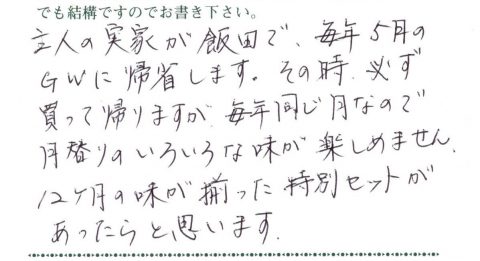 でも結構ですのでお書き下さい。
主人の実家が飯田で、毎年5月の
GWに帰省します。その時、必ず
買って帰りますが、毎年同じ月なので
月替りのいろいろな味が楽しめません。
12ヶ月の味が揃った特別セットが
あったらと思います。